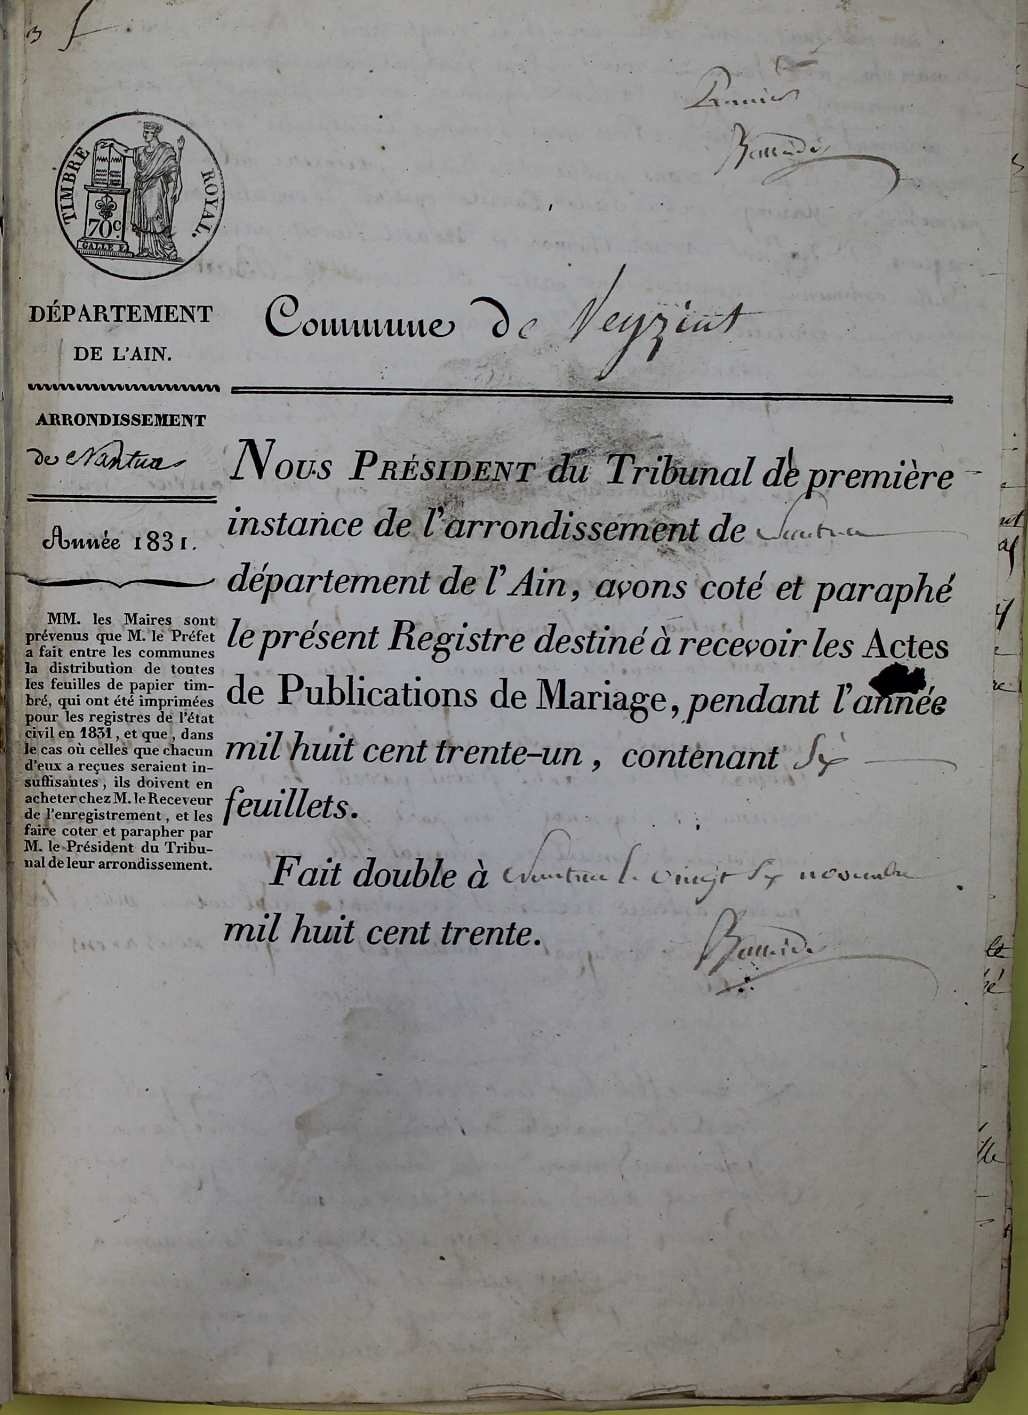 Premier
TIMBRE ROYAL.
70c.
DÉPARTEMENT
DE L'AIN.
Commune de Veyziat
ARRONDISSEMENT
de Nantua
Année 1831.
MM. les Maires sont
prévenus que M. le Préfet
a fait entre les communes
la distribution de toutes
les feuilles de papier tim-
bré, qui ont été imprimées
pour les registres de l'état
civil en 1831, et que, dans
le cas où celles que chacun
d'eux a reçues seraient in-
suffisantes, ils doivent en
acheter chez M. le Receveur
de l'enregistrement, et les
faire coter et parapher par
M. le Président du Tribu-
nal de leur arrondissement.
NOUS PRÉSIDENT du Tribunal de première
instance de l'arrondissement de Nantua
département de l'Ain, avons coté et paraphé
le présent Registre destiné à recevoir les Actes
de Publications de Mariage, pendant l'année
mil huit cent trente-un, contenant Six
feuillets.
Fait double à Nantua le vingt Six novembre
mil huit cent trente.